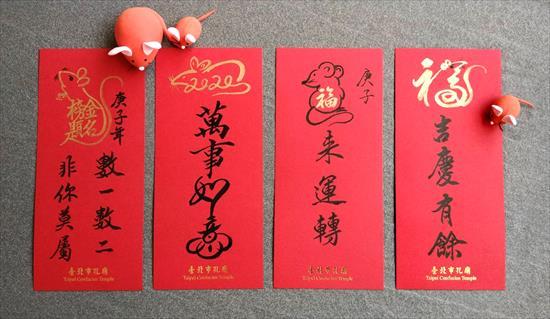 金榜題名
庚子年
數一數二
非你莫屬
臺北市孔廟
Taipei Confucius Temple
2020
萬事如意
臺北市孔廟
Taipei Confucius Temple
庚子
福
來運轉
臺北市孔廟
Taipei Confucius Temple
福
吉慶有餘
臺北市孔廟
Taipei Confucius Temple